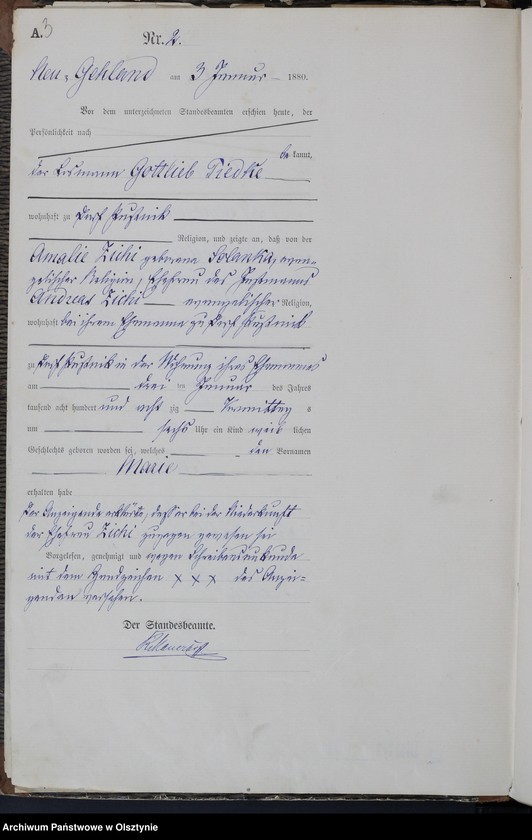 A. 3
Nr. 2.
Neu-Gehland am 3 Januar 1880.
Vor dem unterzeichneten Standesbeamten erschien heute, der
Persönlichkeit nach
be kannt,
der Losmann Gottlieb Piedtke
wohnhaft zu Dorf Pustnik
Religion, und zeigte an, daß von der
Amalie Zichi geborene Solanka, evan-
gelischer Religion, Ehefrau des
Andreas Zichi evangelischer Religion,
wohnhaft bei ihrem Ehemanne zu Dorf Pustnick
zu Dorf Pustnik in der Wohnung ihres Ehemannes
am drei ten Januar des Jahres
tausend acht hundert und acht zig Vormittag s
um sechs Uhr ein Kind weib lichen
Geschlechts geboren worden sei, welches den Vornamen
Marie
erhalten habe
Der Anzeigende erklärte, dass er bei der Niederkunft
der Ehefrau Zichi zugegen gewesen sei
Vorgelesen, genehmigt und wegen Schreibensunkunde
mit dem Handzeichen x x x des Anzei-
genden versehen.
Der Standesbeamte.
Archiwum Państwowe w Olsztynie